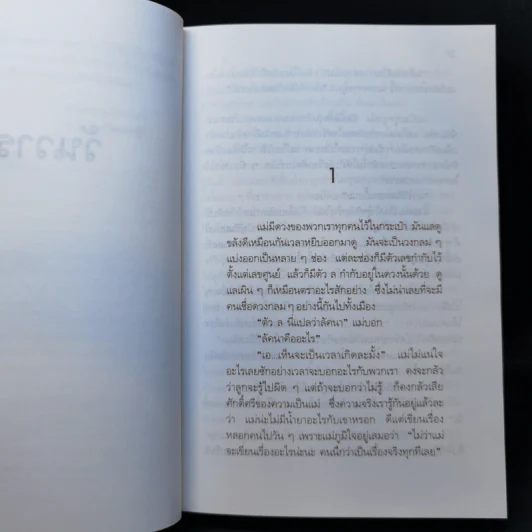 1
แม่มีดวงของพวกเราทุกคนไว้ในกระเป๋า มันแลดู
ขลังดีเหมือนกันเวลาหยิบออกมาดู มันจะเป็นวงกลม ๆ
แบ่งออกเป็นหลาย ๆ ช่อง แต่ละช่องก็มีตัวเลขกำกับไว้
ตั้งแต่เลขศูนย์ แล้วก็มีตัว ล กำกับอยู่ในดวงนั้นด้วย ดู
แลเผิน ๆ ก็เหมือนตราอะไรสักอย่าง ซึ่งไม่น่าเลยที่จะมี
คนเชื่อดวงกลม ๆ อย่างนี้กันไปทั้งเมือง
“ตัว ล นี่แปลว่าลัคนา” แม่บอก
“ลัคนาคืออะไร”
“เอ...เห็นจะเป็นเวลาเกิดละมั้ง” แม่ไม่แน่ใจ
อะไรเลยซักอย่างเวลาจะบอกอะไรกับพวกเรา คงจะกลัว
ว่าลูกจะรู้ไปผิด ๆ แต่ถ้าจะบอกว่าไม่รู้ ก็คงกลัวเสีย
ศักดิ์ศรีของความเป็นแม่ ซึ่งความจริงเรารู้กันอยู่แล้วละ
ว่า แม่น่ะไม่มีน้ำยาอะไรกับเขาหรอก ดีแต่เขียนเรื่อง
หลอกคนไปวัน ๆ เพราะแม่ภูมิใจอยู่เสมอว่า “ไม่ว่าแม่
จะเขียนเรื่องอะไรน่ะนะ คนนึกว่าเป็นเรื่องจริงทุกทีเลย”